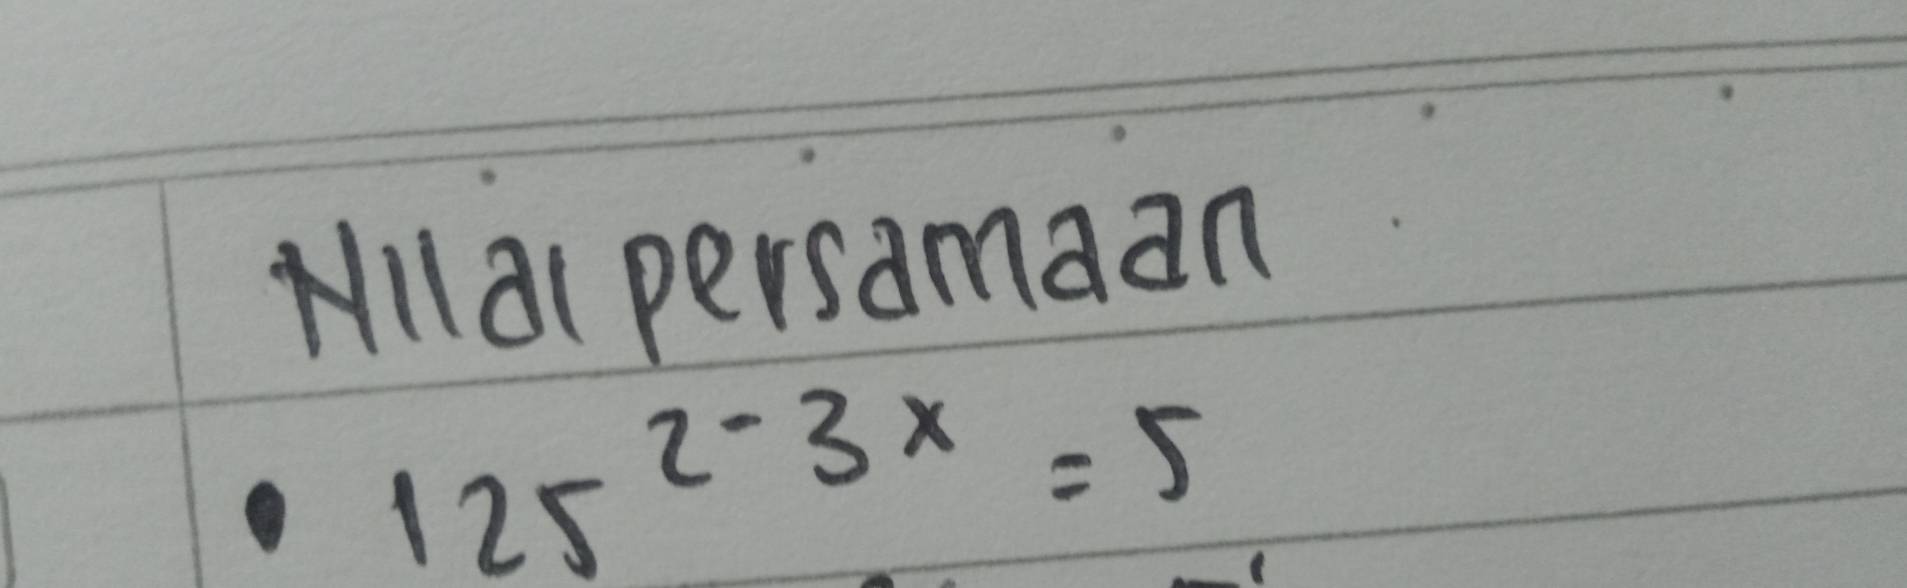 Nilai persamaan
• 125^{2-3x} = 5